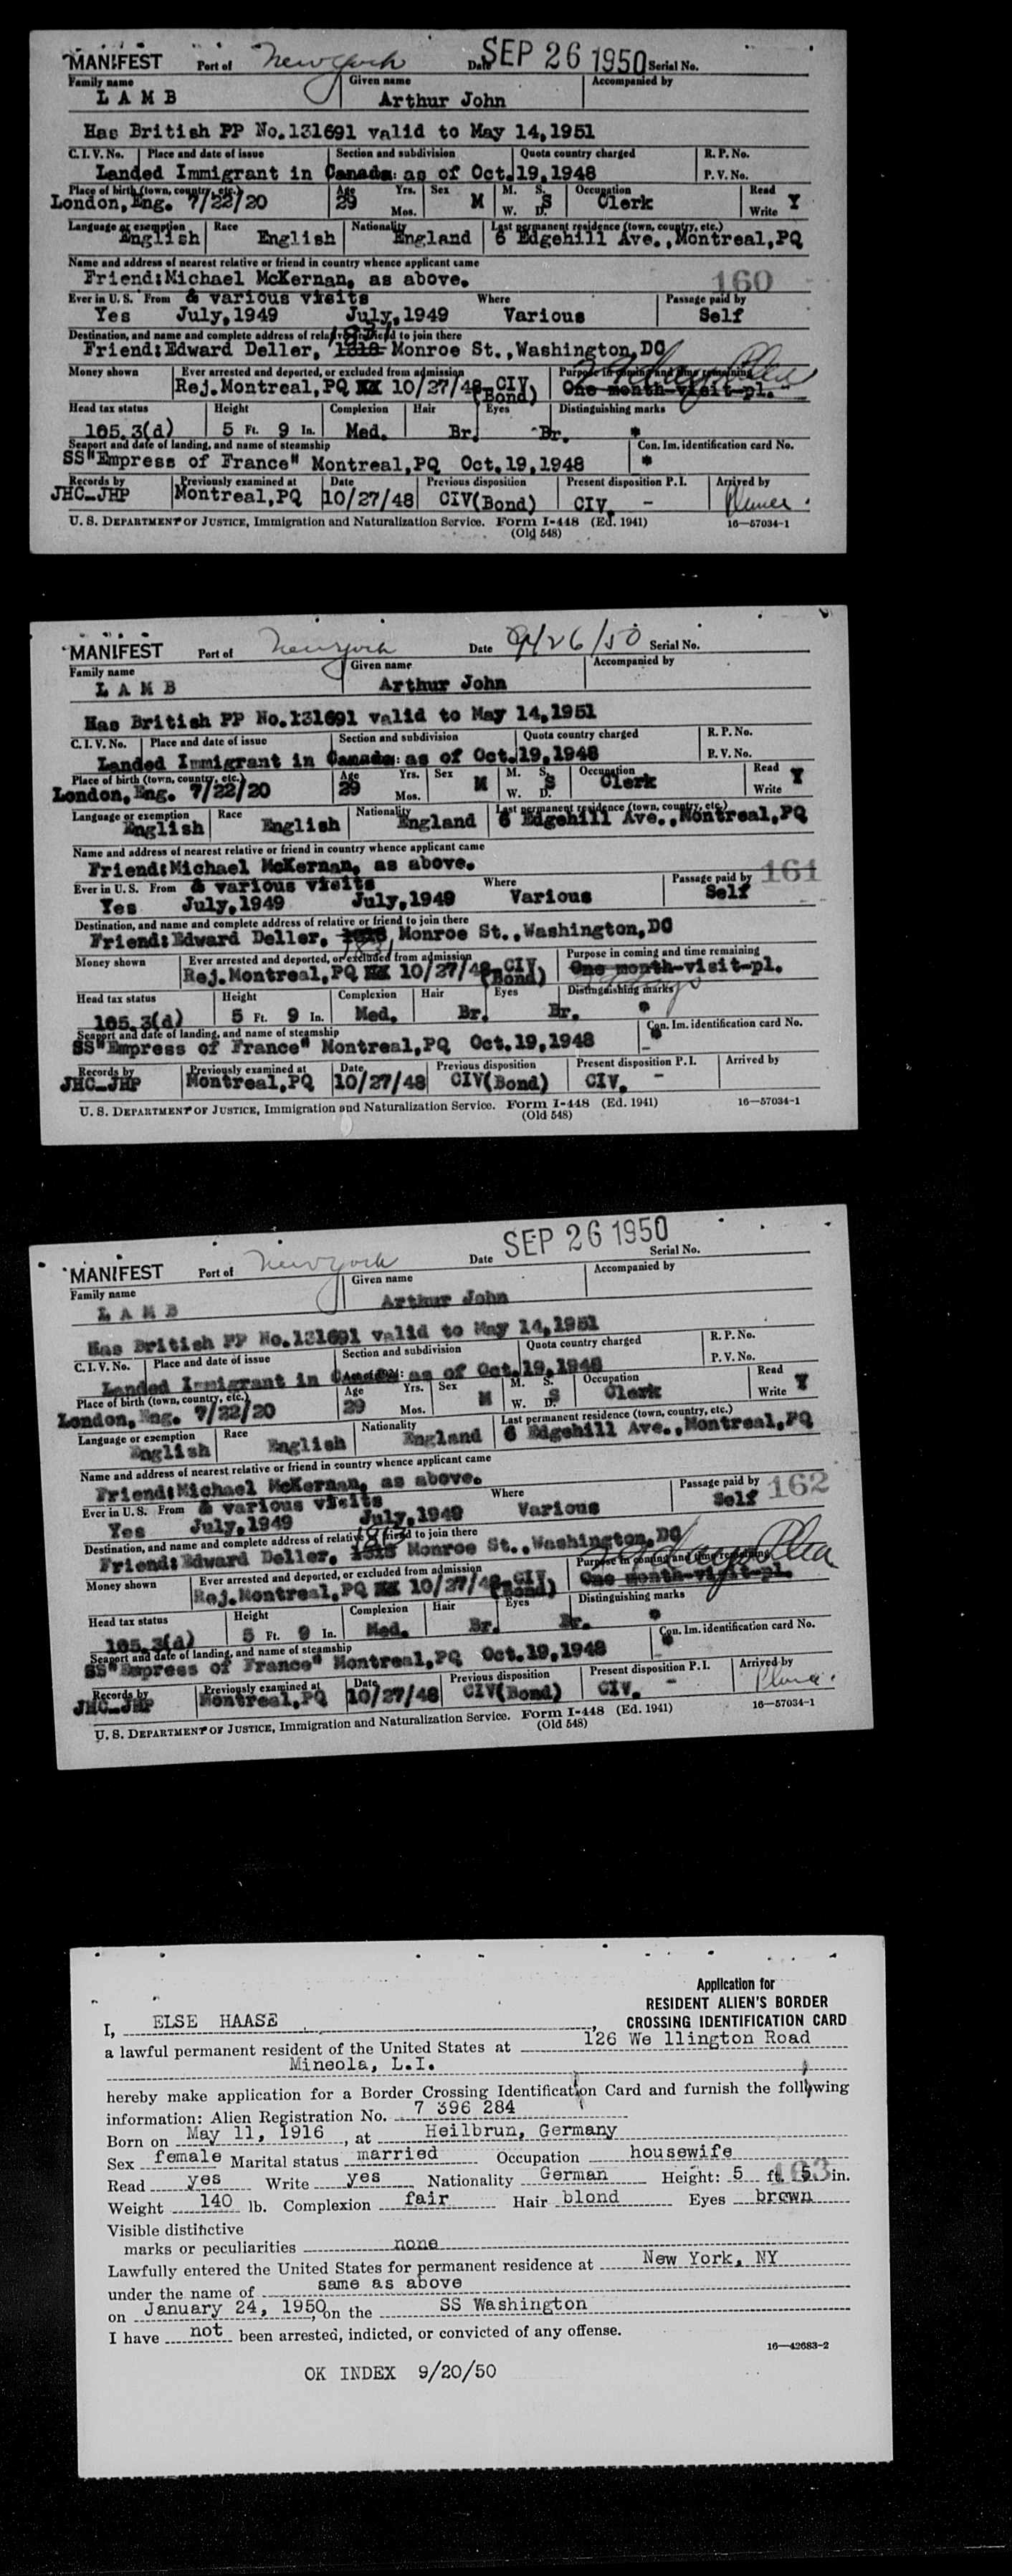 MANIFEST Port of New York Date SEP 26 1950 Serial No.
Family name Given name Accompanied by
LAMB Arthur John
Has British PP No.131691 valid to May 14,1951
C. I. V. No. Place and date of issue Section and subdivision Quota country charged R. P. No.
Landed Immigrant in Canada: as of Oct.19,1948 P. V. No.
Place of birth (town, country, etc.) Age Yrs. Sex M. S. Occupation Read
London, Eng. 7/22/20 29 Mos. M W. D. S Clerk Write Y
Language or exemption Race Nationality Last permanent residence (town, country, etc.)
English English England 6 Edgehill Ave.,Montreal,PQ
Name and address of nearest relative or friend in country whence applicant came
Friend:Michael McKernan, as above. 160
Ever in U. S. From & various visits Where Passage paid by
Yes July,1949 July,1949 Various Self
Destination, and name and complete address of relative or friend to join there
Friend:Edward Deller, 1818 Monroe St.,Washington,DC
Money shown Ever arrested and deported, or excluded from admission Purpose in coming and time remaining
Rej.Montreal,PQ XX 10/27/48-CIV (Bond) One month-visit-pl.
Head tax status Height Complexion Hair Eyes Distinguishing marks
105.3(d) 5 Ft. 9 In. Med. Br. Br. *
Seaport and date of landing, and name of steamship Con. Im. identification card No.
SS"Empress of France" Montreal,PQ Oct.19,1948 *
Records by Previously examined at Date Previous disposition Present disposition P. I. Arrived by
JHC-JHP Montreal,PQ 10/27/48 CIV(Bond) CIV. -
U. S. DEPARTMENT OF JUSTICE, Immigration and Naturalization Service. Form I-448 (Ed. 1941) 16-57034-1
(Old 548)
MANIFEST Port of New York Date 9/26/50 Serial No.
Family name Given name Accompanied by
LAMB Arthur John
Has British PP No.131691 valid to May 14,1951
C. I. V. No. Place and date of issue Section and subdivision Quota country charged R. P. No.
Landed Immigrant in Canada: as of Oct.19,1948 P. V. No.
Place of birth (town, country, etc.) Age Yrs. Sex M. S. Occupation Read
London, Eng. 7/22/20 29 Mos. M W. D. S Clerk Write Y
Language or exemption Race Nationality Last permanent residence (town, country, etc.)
English English England 6 Edgehill Ave.,Montreal,PQ
Name and address of nearest relative or friend in country whence applicant came
Friend:Michael McKernan, as above.
Ever in U. S. From & various visits Where Passage paid by 161
Yes July,1949 July,1949 Various Self
Destination, and name and complete address of relative or friend to join there
Friend:Edward Deller, Monroe St.,Washington,DC
Money shown Ever arrested and deported, or excluded from admission Purpose in coming and time remaining
Rej.Montreal,PQ XX 10/27/48-CIV (Bond) One month-visit-pl.
Head tax status Height Complexion Hair Eyes Distinguishing marks
105.3(d) 5 Ft. 9 In. Med. Br. Br. *
Seaport and date of landing, and name of steamship Con. Im. identification card No.
SS"Empress of France" Montreal,PQ Oct.19,1948 *
Records by Previously examined at Date Previous disposition Present disposition P. I. Arrived by
JHC-JHP Montreal,PQ 10/27/48 CIV(Bond) CIV. -
U. S. DEPARTMENT OF JUSTICE, Immigration and Naturalization Service. Form I-448 (Ed. 1941) 16-57034-1
(Old 548)
MANIFEST Port of New York Date SEP 26 1950 Serial No.
Family name Given name Accompanied by
LAMB Arthur John
Has British PP No.131691 valid to May 14,1951
C. I. V. No. Place and date of issue Section and subdivision Quota country charged R. P. No.
Landed Immigrant in Canada: as of Oct.19,1948 P. V. No.
Place of birth (town, country, etc.) Age Yrs. Sex M. S. Occupation Read
London, Eng. 7/22/20 29 Mos. M W. D. S Clerk Write Y
Language or exemption Race Nationality Last permanent residence (town, country, etc.)
English English England 6 Edgehill Ave.,Montreal,PQ
Name and address of nearest relative or friend in country whence applicant came
Friend:Michael McKernan, as above.
Ever in U. S. From & various visits Where Passage paid by 162
Yes July,1949 July,1949 Various Self
Destination, and name and complete address of relative or friend to join there
Friend:Edward Deller, Monroe St.,Washington,DC
Money shown Ever arrested and deported, or excluded from admission Purpose in coming and time remaining
Rej.Montreal,PQ XX 10/27/48-CIV (Bond) One month-visit-pl.
Head tax status Height Complexion Hair Eyes Distinguishing marks
105.3(d) 5 Ft. 9 In. Med. Br. Br. *
Seaport and date of landing, and name of steamship Con. Im. identification card No.
SS"Empress of France" Montreal,PQ Oct.19,1948 *
Records by Previously examined at Date Previous disposition Present disposition P. I. Arrived by
JHC-JHP Montreal,PQ 10/27/48 CIV(Bond) CIV. -
U. S. DEPARTMENT OF JUSTICE, Immigration and Naturalization Service. Form I-448 (Ed. 1941) 16-57034-1
(Old 548)
Application for
RESIDENT ALIEN'S BORDER
CROSSING IDENTIFICATION CARD
I, ELSE HAASE,
a lawful permanent resident of the United States at 126 We llington Road
Mineola, L.I.
hereby make application for a Border Crossing Identification Card and furnish the following
information: Alien Registration No. 7 396 284
Born on May 11, 1916, at Heilbrun, Germany
Sex female Marital status married Occupation housewife
Read yes Write yes Nationality German Height: 5 ft. 5 in. 163
Weight 140 lb. Complexion fair Hair blond Eyes brown
Visible distinctive
marks or peculiarities none
Lawfully entered the United States for permanent residence at New York, NY
under the name of same as above
on January 24, 1950, on the SS Washington
I have not been arrested, indicted, or convicted of any offense.
16-42683-2
OK INDEX 9/20/50